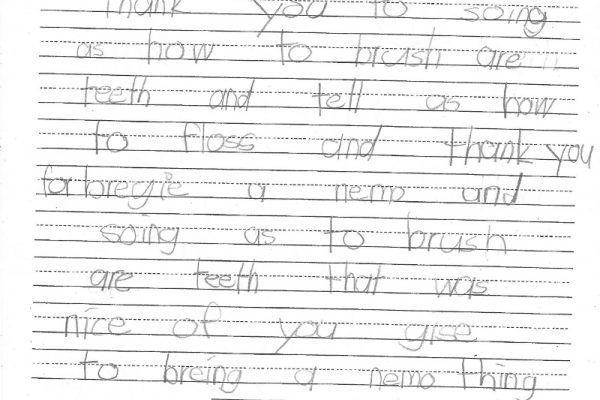 thank you to soing
as how to brush are
teeth and tell as how
to floss and thank you
for bregie a nemo and
soing as to brush
are teeth that was
nice of you gise
to breing a nemo thing